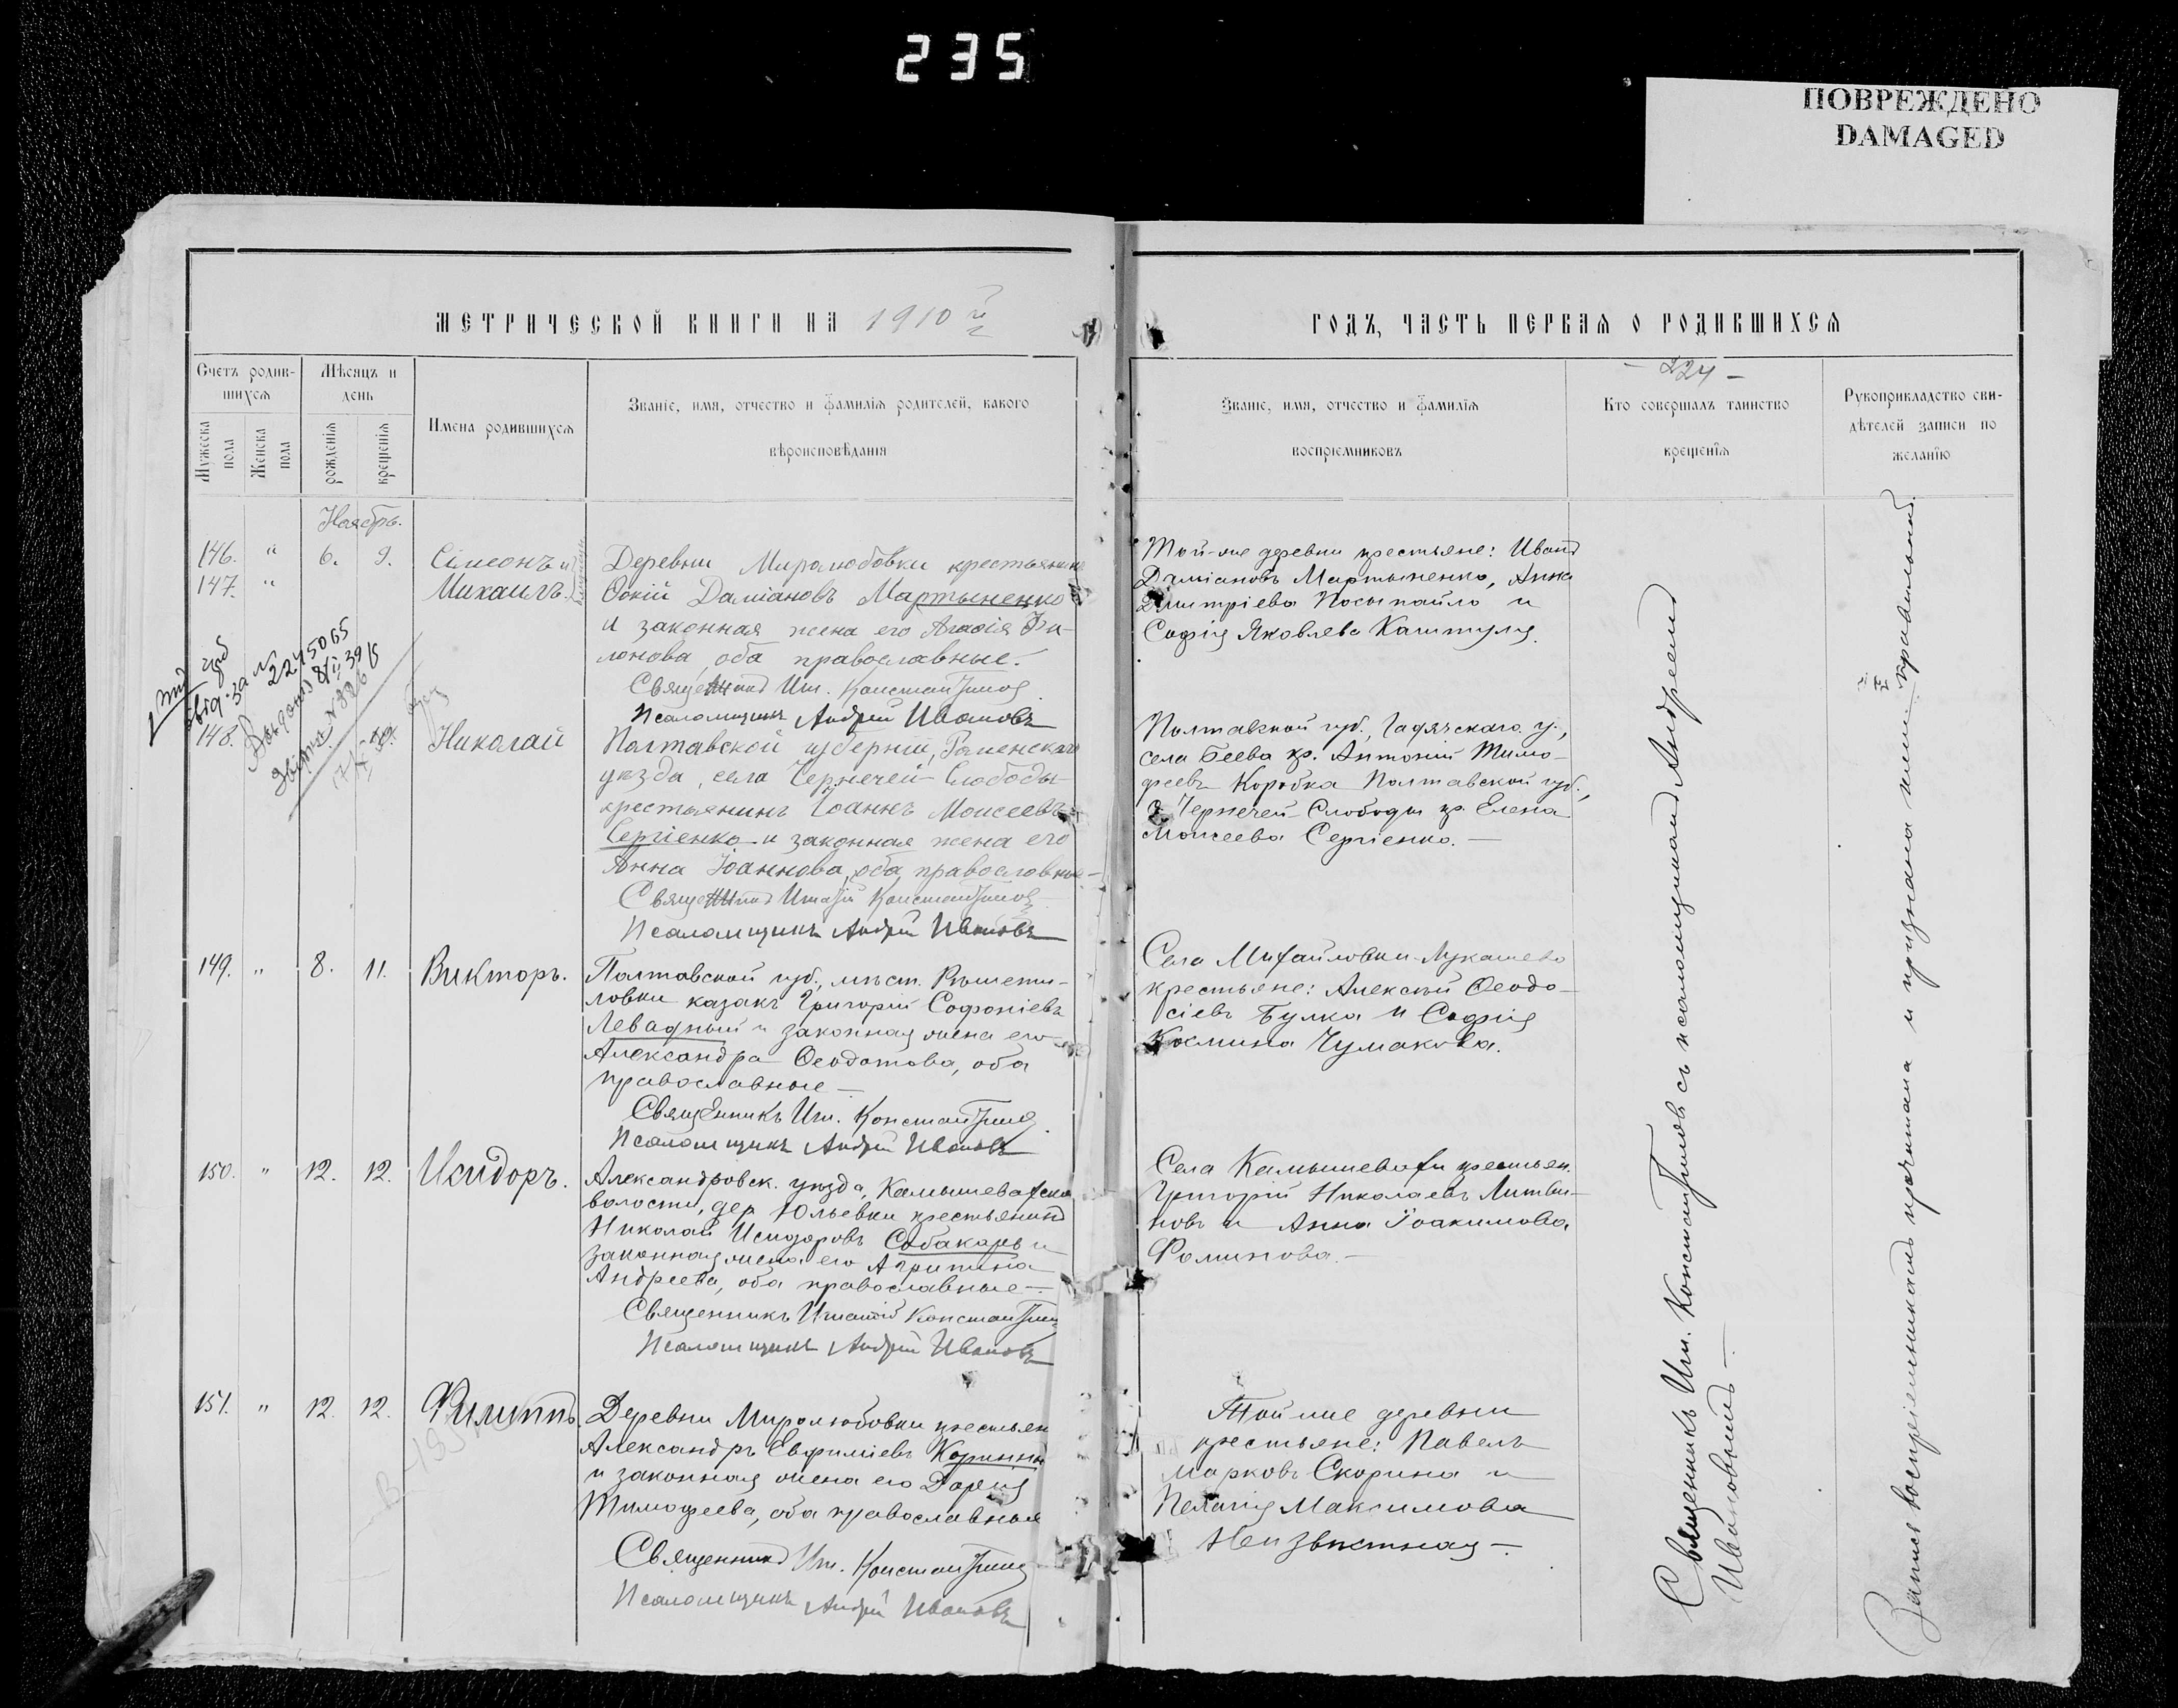 235
ПОВРЕЖДЕНО
DAMAGED
МЕТРИЧЕСКОЙ КНИГИ НА 1910 й
Счетъ родив-
шихся
Мѣсяцъ и
день
Мужеска
пола
Женска
пола
рожденія
крещенія
Имена родившихся
Званіе, имя, отчество и фамилія родителей, какого
вѣроисповѣданія
Ноябрь.
146. " 6. 9. Сімеонъ и
147. " Михаилъ.
Деревни Миролюбовки крестьянинъ
Фокій Даміановъ Мартыненко
и законная жена его Агафія Фи-
лонова, оба православные.
Священникъ Игн. Константиновъ
Псаломщикъ Андрей Ивановъ
№ 2245065
148. Николай
Полтавской губерніи, Роменскаго
уѣзда, села Чернечей-Слободы
крестьянинъ Іоаннъ Моисеевъ
Сергіенко и законная жена его
Анна Іоаннова, оба православные
Священникъ Игнатій Константиновъ
Псаломщикъ Андрей Ивановъ
149. " 8. 11. Викторъ.
Полтавской губ., мѣст. Рѣшети-
ловки казакъ Григорій Софоніевъ
Левадный и законная жена его
Александра Феодотова, оба
православные
Священникъ Игн. Константиновъ
Псаломщикъ Андрей Ивановъ
150. " 12. 12. Исидоръ.
Александровск. уѣзда, Камышеватской
волости, дер. Юльевки крестьянинъ
Николай Исидоровъ Собакарь и
законная жена его Агрипина
Андреева, оба православные
Священникъ Игнатій Константиновъ
Псаломщикъ Андрей Ивановъ
151. " 12. 12. Филиппъ.
Деревни Миролюбовки крестьян.
Александръ Евфиміевъ
и законная жена его Дарія
Тимофеева, оба православные
Священникъ Игн. Константиновъ
Псаломщикъ Андрей Ивановъ
ГОДЪ, ЧАСТЬ ПЕРВАЯ О РОДИВШИХСЯ
- 224 -
Званіе, имя, отчество и фамилія
воспріемниковъ
Кто совершалъ таинство
крещенія
Рукоприкладство сви-
дѣтелей записи по
желанію
Той-же деревни крестьяне: Иванъ
Даміановъ Мартыненко, Анна
Димитріева Посыпайло и
Софія Яковлева
Полтавской губ., Гадячскаго у.,
села Беева кр. Антоній Тимо-
феевъ Коробка Полтавской губ.,
с. Чернечей-Слободы кр. Елена
Моисеева Сергіенко.
Села Михайловки-Лукашево
крестьяне: Алексѣй Феодо-
сіевъ Булка и Софія
Космина Чумакова.
Села Камышевахи крестьян.
Григорій Николаевъ Литви-
новъ и Анна Іоакимова
Фоминова.
Той же деревни
крестьяне: Павелъ
Марковъ Скорина и
Пелагія Максимова
Неизвѣстная
Священникъ Игн. Константиновъ съ псаломщикомъ Андреемъ
Ивановымъ
Запись воспріемникамъ прочитана и признана ими правильной.